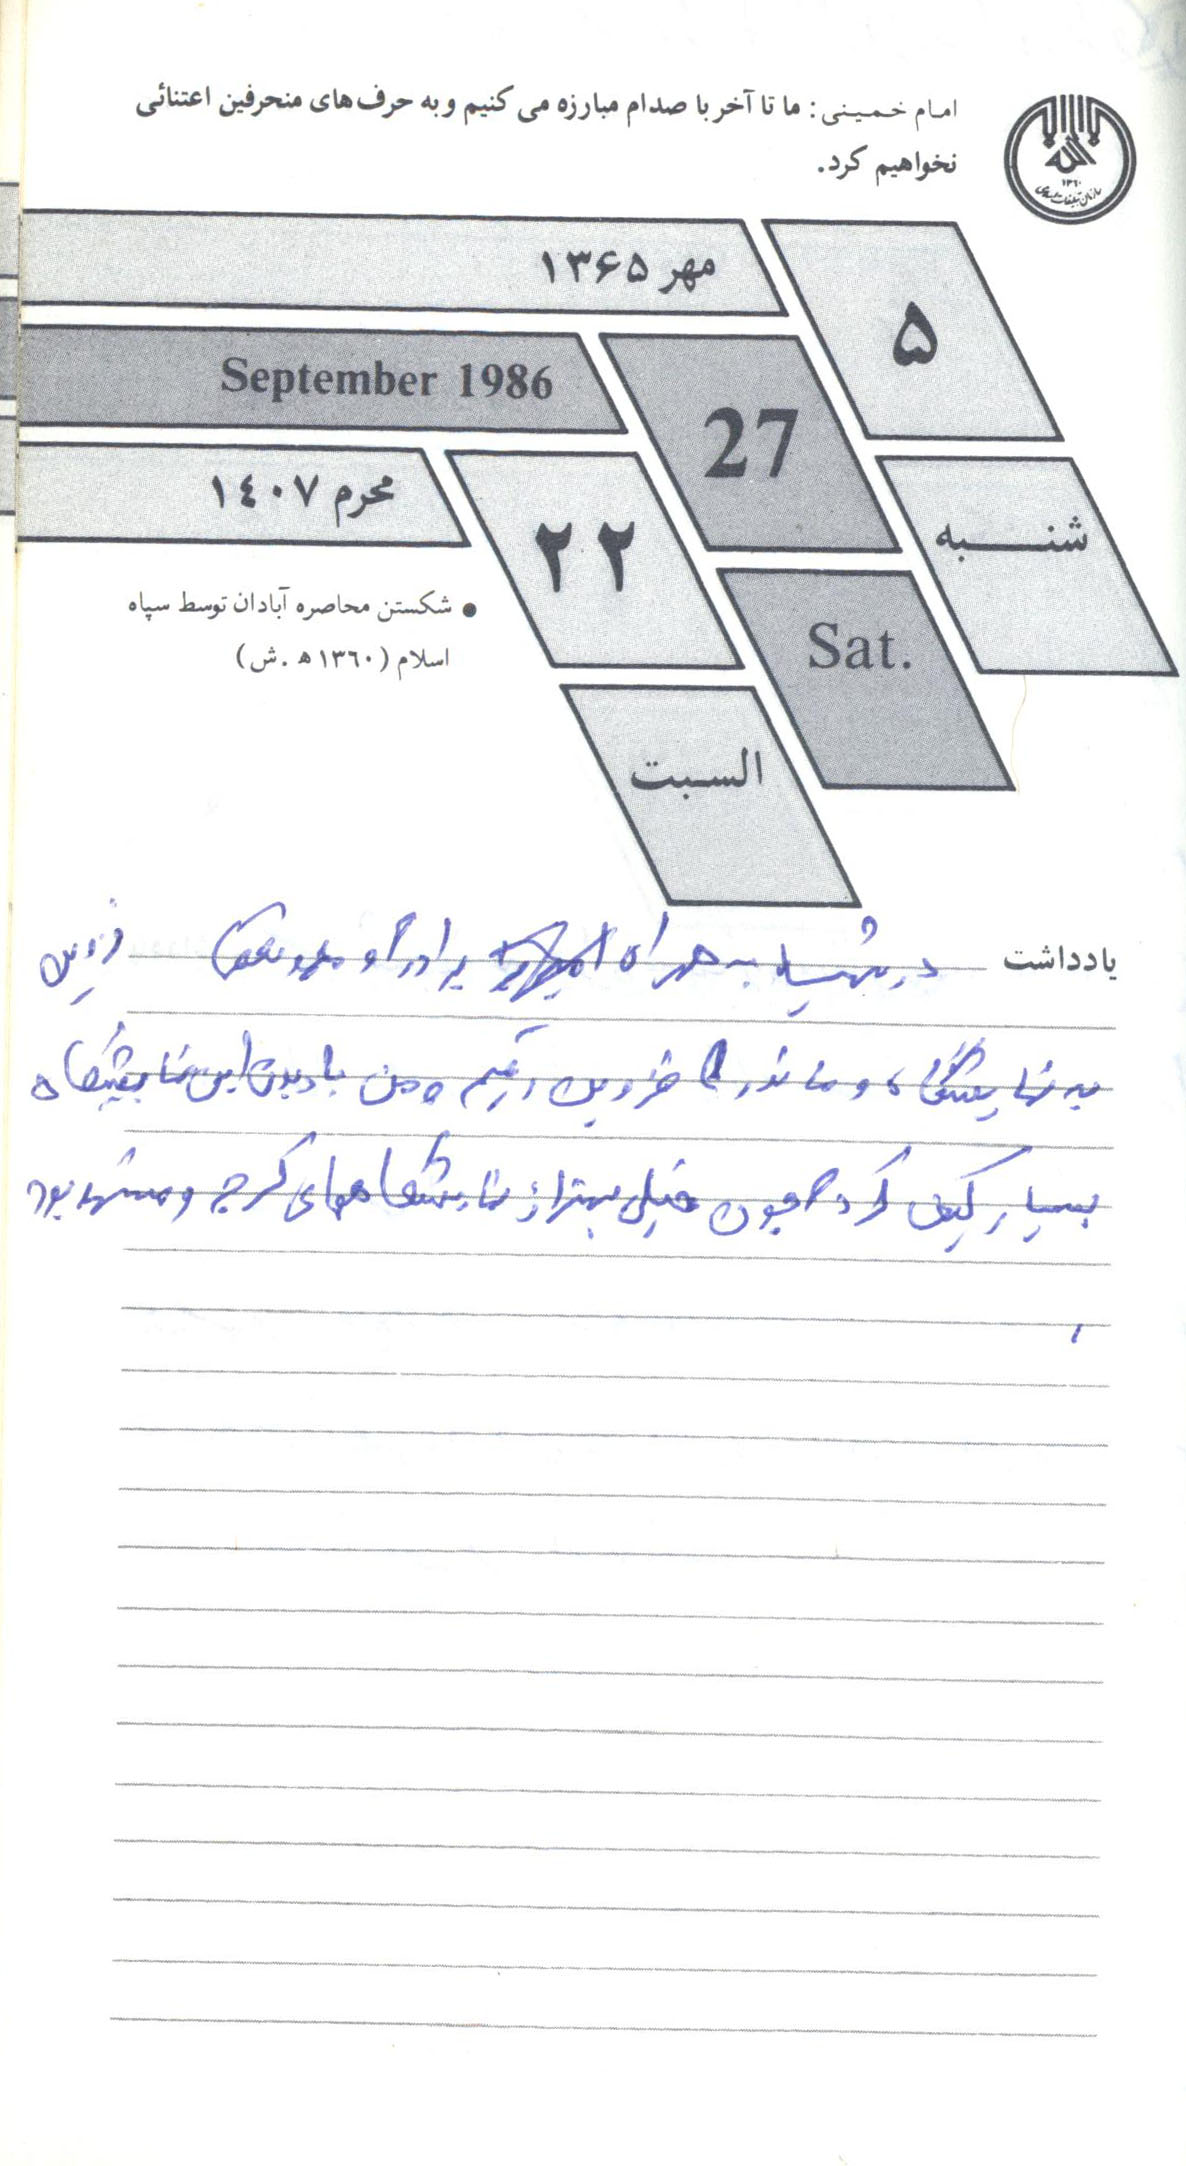 امام خمینی: ما تا آخر با صدام مبارزه می کنیم و به حرف های منحرفین اعتنائی
نخواهیم کرد.
۱۳۶۰
سازمان تبلیغات اسلامی
مهر ۱۳۶۵
۵
September 1986
27
محرم ۱٤۰۷
۲۲
شنبه
• شکستن محاصره آبادان توسط سپاه
اسلام (۱۳٦۰ه.ش)
Sat.
السبت
یادداشت
به همراه برادر
به نمایشگاه و قزوین رفتیم و من با دیدن این نمایشگاه
بسیار کیف کردم چون خیلی بهتر از نمایشگاههای کرج و مشهد بود